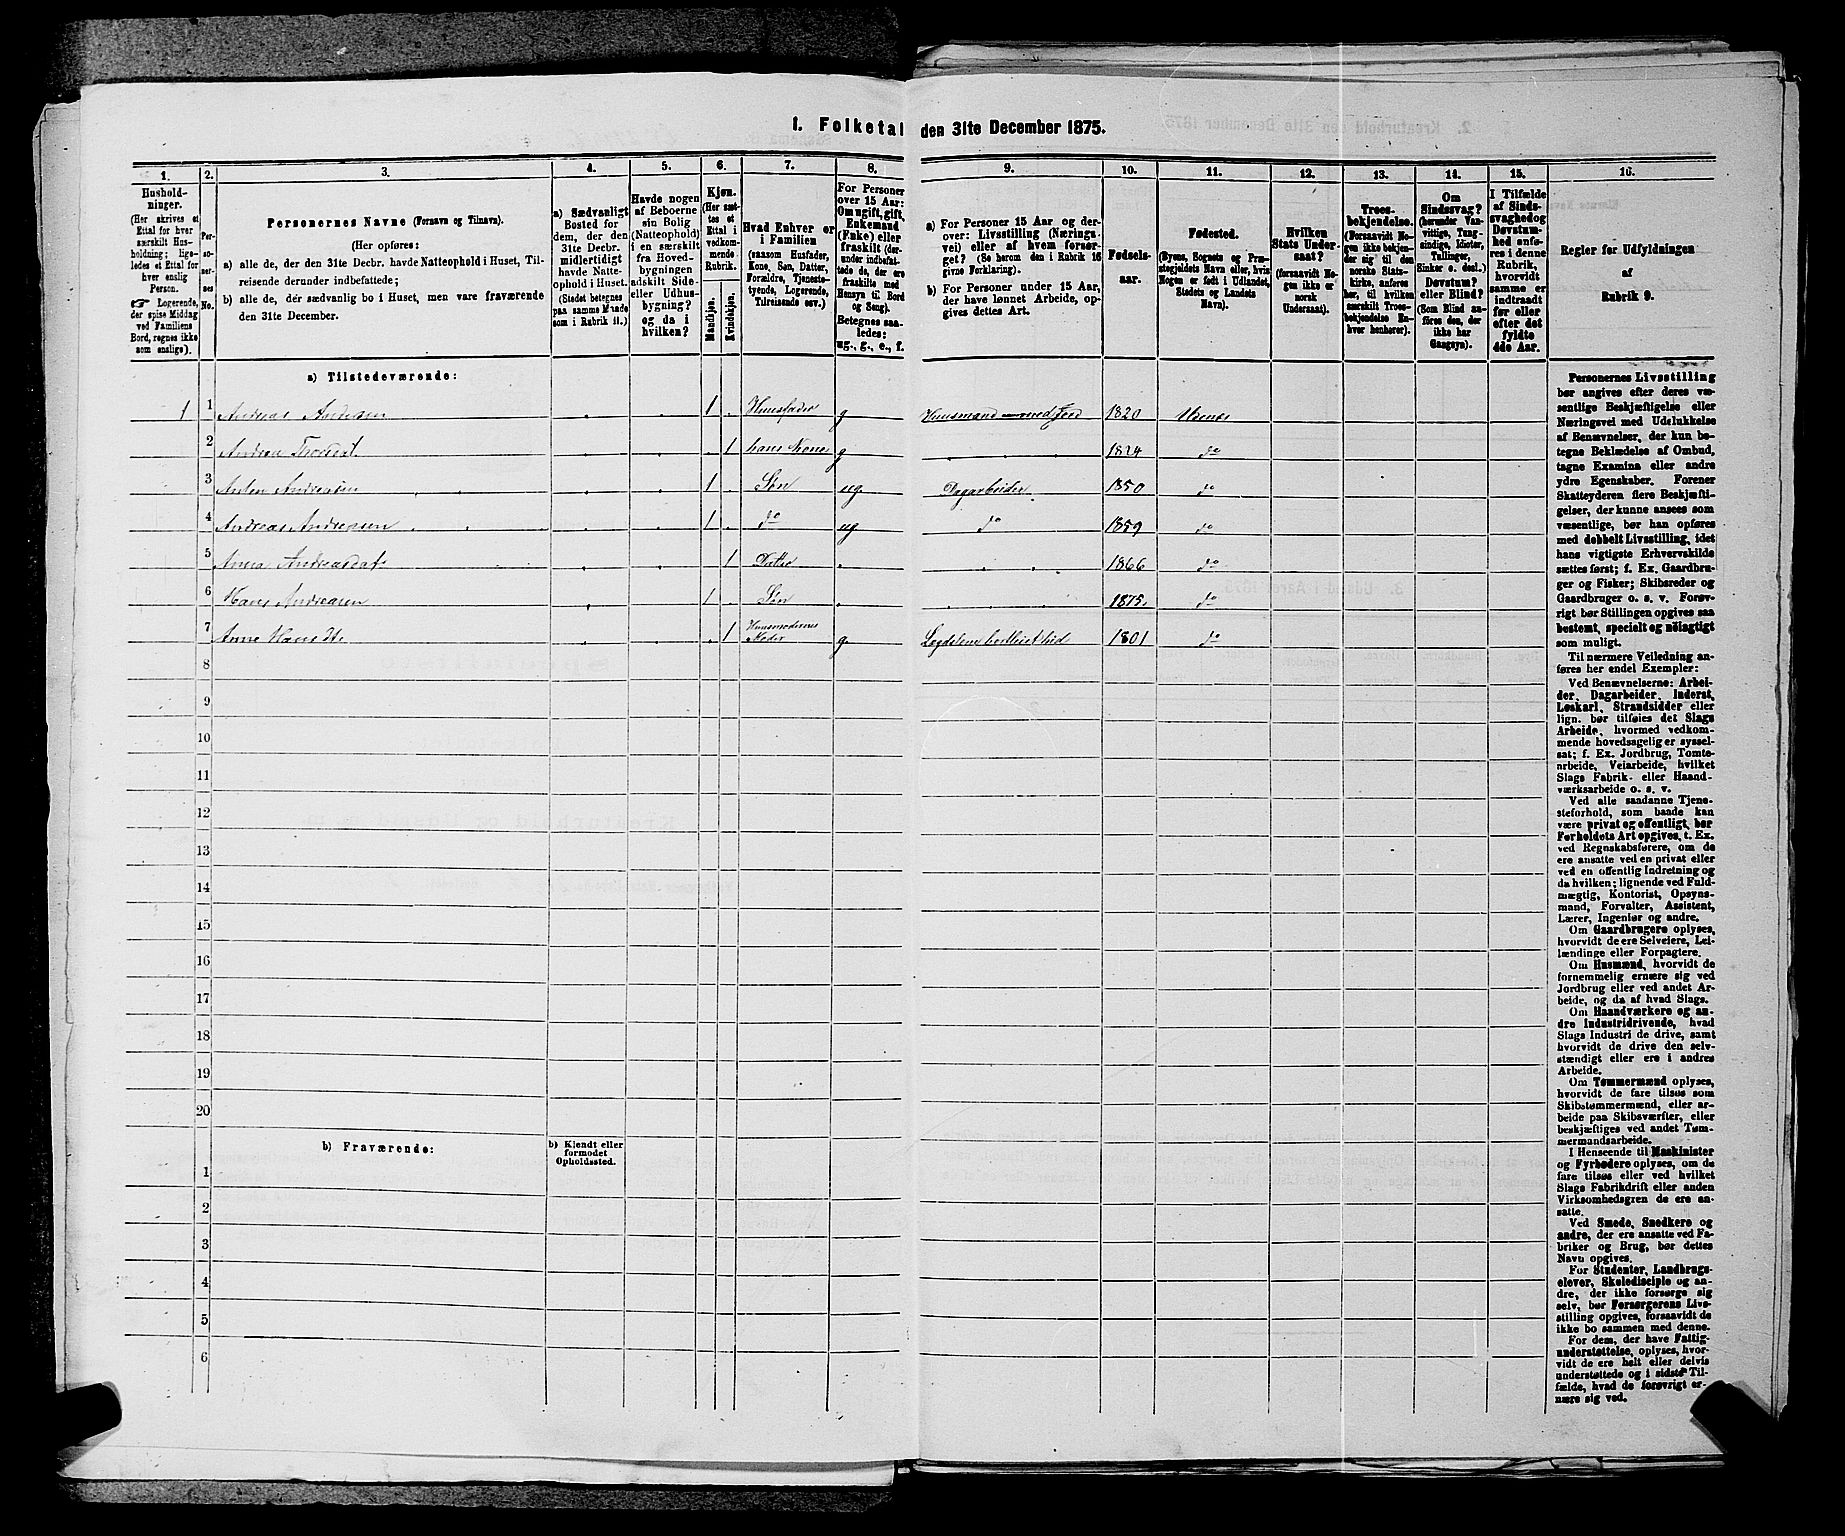 1. Folketal den 31te December 1875.
1. 2. 3. 4. 5. 6. 7. 8. 9. 10. 11. 12. 13. 14. 15. 16.
Hushold-
ninger.
(Her skrives et
Ettal for hver
særskilt Hus-
holdning; lige-
ledes et Ettal for
hver enslig
Person.
☞ Logerende,
der spise Middag
ved Familiens
Bord, regnes ikke
som enslige).
Per-
so-
ner-
nes
No.
Personernes Navne (Fornavn og Tilnavn).
(Her opføres:
a) alle de, der den 31te Decbr. havde Natteophold i Huset, Til-
reisende derunder indbefattede;
b) alle de, der sædvanlig bo i Huset, men vare fraværende
den 31te December.
a) Sædvanligt
Bosted for
dem, der den
31te Decbr.
midlertidigt
havde Natte-
ophold i Huset.
(Stedet betegnes
paa samme Maade
som i Rubrik 11.)
Havde nogen
af Beboerne
sin Bolig
(Natteophold)
i en særskilt
fra Hoved-
bygningen
adskilt Side-
eller Udhus-
bygning?
og da i
hvilken?
Kjøn.
(Her sæt-
tes et
Ettal i
vedkom-
mende
Rubrik.
Mandkjøn.
Kvindekjøn.
Hvad Enhver er
i Familien
(saasom Husfader,
Kone, Søn, Datter,
Forældre, Tjeneste-
tyende, Logerende,
Tilreisende osv.)
For Personer
over 15 Aar:
Om ugift, gift,
Enkemand
(Enke) eller
fraskilt (der-
under indbefat-
tede de, der ere
fraskilte med
Hensyn til Bord
og Seng).
Betegnes saa-
ledes:
ug., g., e., f.
a) For Personer 15 Aar og der-
over: Livsstilling (Nærings-
vei) eller af hvem forsør-
get? (Se herom den i Rubrik 16
givne Forklaring).
b) For Personer under 15 Aar,
der have lønnet Arbeide, op-
gives dettes Art.
Fødsels-
aar.
Fødested.
(Byens, Sognets og Præ-
stegjeldets Navn eller, hvis
Nogen er født i Udlandet,
Stedets og Landets
Navn).
Hvilken
Stats Under-
saat?
(forsaavidt No-
gen ikke er
norsk
Undersaat).
Troes-
bekjendelse.
(Forsaavidt No-
gen ikke bekjen-
der sig til den
norske Stats-
kirke, anføres
her, til hvilken
særskilt Troes-
bekjendelse En-
hver henhører).
Om
Sindssvag?
(herunder Van-
vittige, Tung-
sindige, Idioter,
Tullinger,
Sinker o. desl.)
Døvstum?
eller Blind?
(Som Blind an-
føres den, der
ikke har
Gangsyn).
I Tilfælde
af Sinds-
svaghed og
Døvstum-
hed anfø-
res i denne
Rubrik,
hvorvidt
samme er
indtraadt
før eller
efter det
fyldte
4de Aar.
Regler for Udfyldningen
af
Rubrik 9.
a) Tilstedeværende:
1 1 Andreas Andersen 1 Huusfader g Huusmand med Jord 1820 Udenes
2 Andrea 1 hans Kone g 1824 do
3 Anton Andreasen 1 Søn ug. Dagarbeider 1850 do
4 Andreas Andreasen 1 do ug do 1859 do
5 Anna Andreasdat. 1 Datter 1866 do
6 Hans Andreasen 1 Søn 1875. do
7 Anne 1 Huusmoderens
Moder g. 1801 do
8
9
10
11
12
13
14
15
16
17
18
19
20
b) Fraværende:
b) Kjendt eller
formodet
Opholdssted.
1
2
3
4
5
6
Personernes Livsstilling
bør angives efter deres væ-
sentlige Beskjæftigelse eller
Næringsvei med Udelukkelse
af Benævnelser, der kun be-
tegne Beklædelse af Ombud,
tagne Examina eller andre
ydre Egenskaber. Forener
Skatteyderen flere Beskjæfti-
gelser, der kunne ansees som
væsentlige, bør han opføres
med dobbelt Livsstilling, idet
hans vigtigste Erhvervskilde
sættes først; f. Ex. Gaardbru-
ger og Fisker; Skibsreder og
Gaardbruger o. s. v. Forøv-
rigt bør Stillingen opgives saa
bestemt, specielt og nøiagtigt
som muligt.
Til nærmere Veiledning an-
føres her endel Exempler:
Ved Benævnelserne: Arbei-
der, Dagarbeider, Inderst,
Løskarl, Strandsidder eller
lign. bør tilføies det Slags
Arbeide, hvormed vedkom-
mende hovedsagelig er syssel-
sat; f. Ex. Jordbrug, Tomte-
arbeide, Veiarbeide, hvilket
Slags Fabrik- eller Haand-
værksarbeide o. s. v.
Ved alle saadanne Tjene-
steforhold, som baade kan
være privat og offentligt, bør
Forholdets Art opgives, t. Ex.
ved Regnskabsførere, om de
ere ansatte ved en privat eller
ved en offentlig Indretning og
da hvilken; lignende ved Fuld-
mægtig, Kontorist, Opsyns-
mand, Forvalter, Assistent,
Lærer, Ingeniør og andre.
Om Gaardbrugere oplyses,
hvorvidt de ere Selveiere, Lei-
lændinge eller Forpagtere.
Om Husmænd, hvorvidt de
fornemmelig ernære sig ved
Jordbrug eller ved andet Ar-
beide, og da af hvad Slags.
Om Haandværkere og an-
dre industridrivende, hvad
Slags Industri de drive, samt
hvorvidt de drive den selv-
stændigt eller ere i andres
Arbeide.
Om Tømmermænd oplyses,
hvorvidt de fare tilsøs som
Skibstømmermænd, eller ar-
beide paa Skibsværfter, eller
beskjæftiges ved andet Tøm-
mermandsarbeide.
I Henseende til Maskinister
og Fyrbødere oplyses, om de
fare tilsøs eller ved hvilket
Slags Fabrikdrift eller anden
Virksomhedsgren de ere an-
satte.
Ved Smede, Snedkere og
andre, der ere ansatte ved Fa-
briker og Brug, bør dettes
Navn opgives.
For Studenter, Landbrugs-
elever, Skoledisciple og an-
dre, der ikke forsørge sig
selv, bør Forsørgerens Livs-
stilling opgives, forsaavidt de
ikke bo sammen med denne.
For dem, der have Fattig-
understøttelse, oplyses, hvor-
vidt de ere helt eller delvis
understøttede og i sidste Til-
fælde, hvad de forøvrigt er-
nære sig ved.